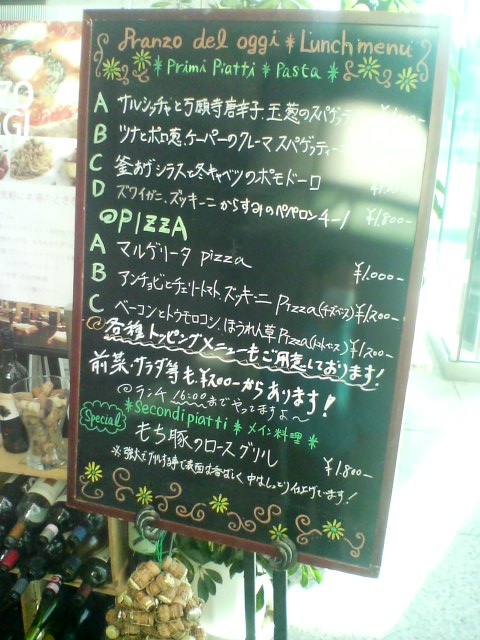 Pranzo del oggi * Lunch menu
* Primi Piatti * Pasta *
A サルシッチャと万願寺唐辛子、玉葱のスパゲッティ
B ツナとポロ葱、ケーパーのクレーマ スパゲッティーニ
C 釜あげシラスと冬キャベツのポモドーロ
D ズワイガニ、ズッキーニ からすみのペペロンチーノ ¥1,800-
@PIZZA
A マルゲリータ pizza ¥1.000-
B アンチョビとチェリートマト、ズッキーニ Pizza(チーズベース) ¥1,200-
C ベーコンとトウモロコシ、ほうれん草 Pizza(トマトベース) ¥1,200-
@各種トッピングメニューもご用意しております!
前菜・サラダ等も、¥200-からあります!
@ランチ 16:00までやってますよ〜
Special *Secondi piatti * メイン料理 *
もち豚のロースグリル ¥1.800-
※強火でグリルする事で表面は香ばしく、中はしっとり仕上げています!
ZO
GI